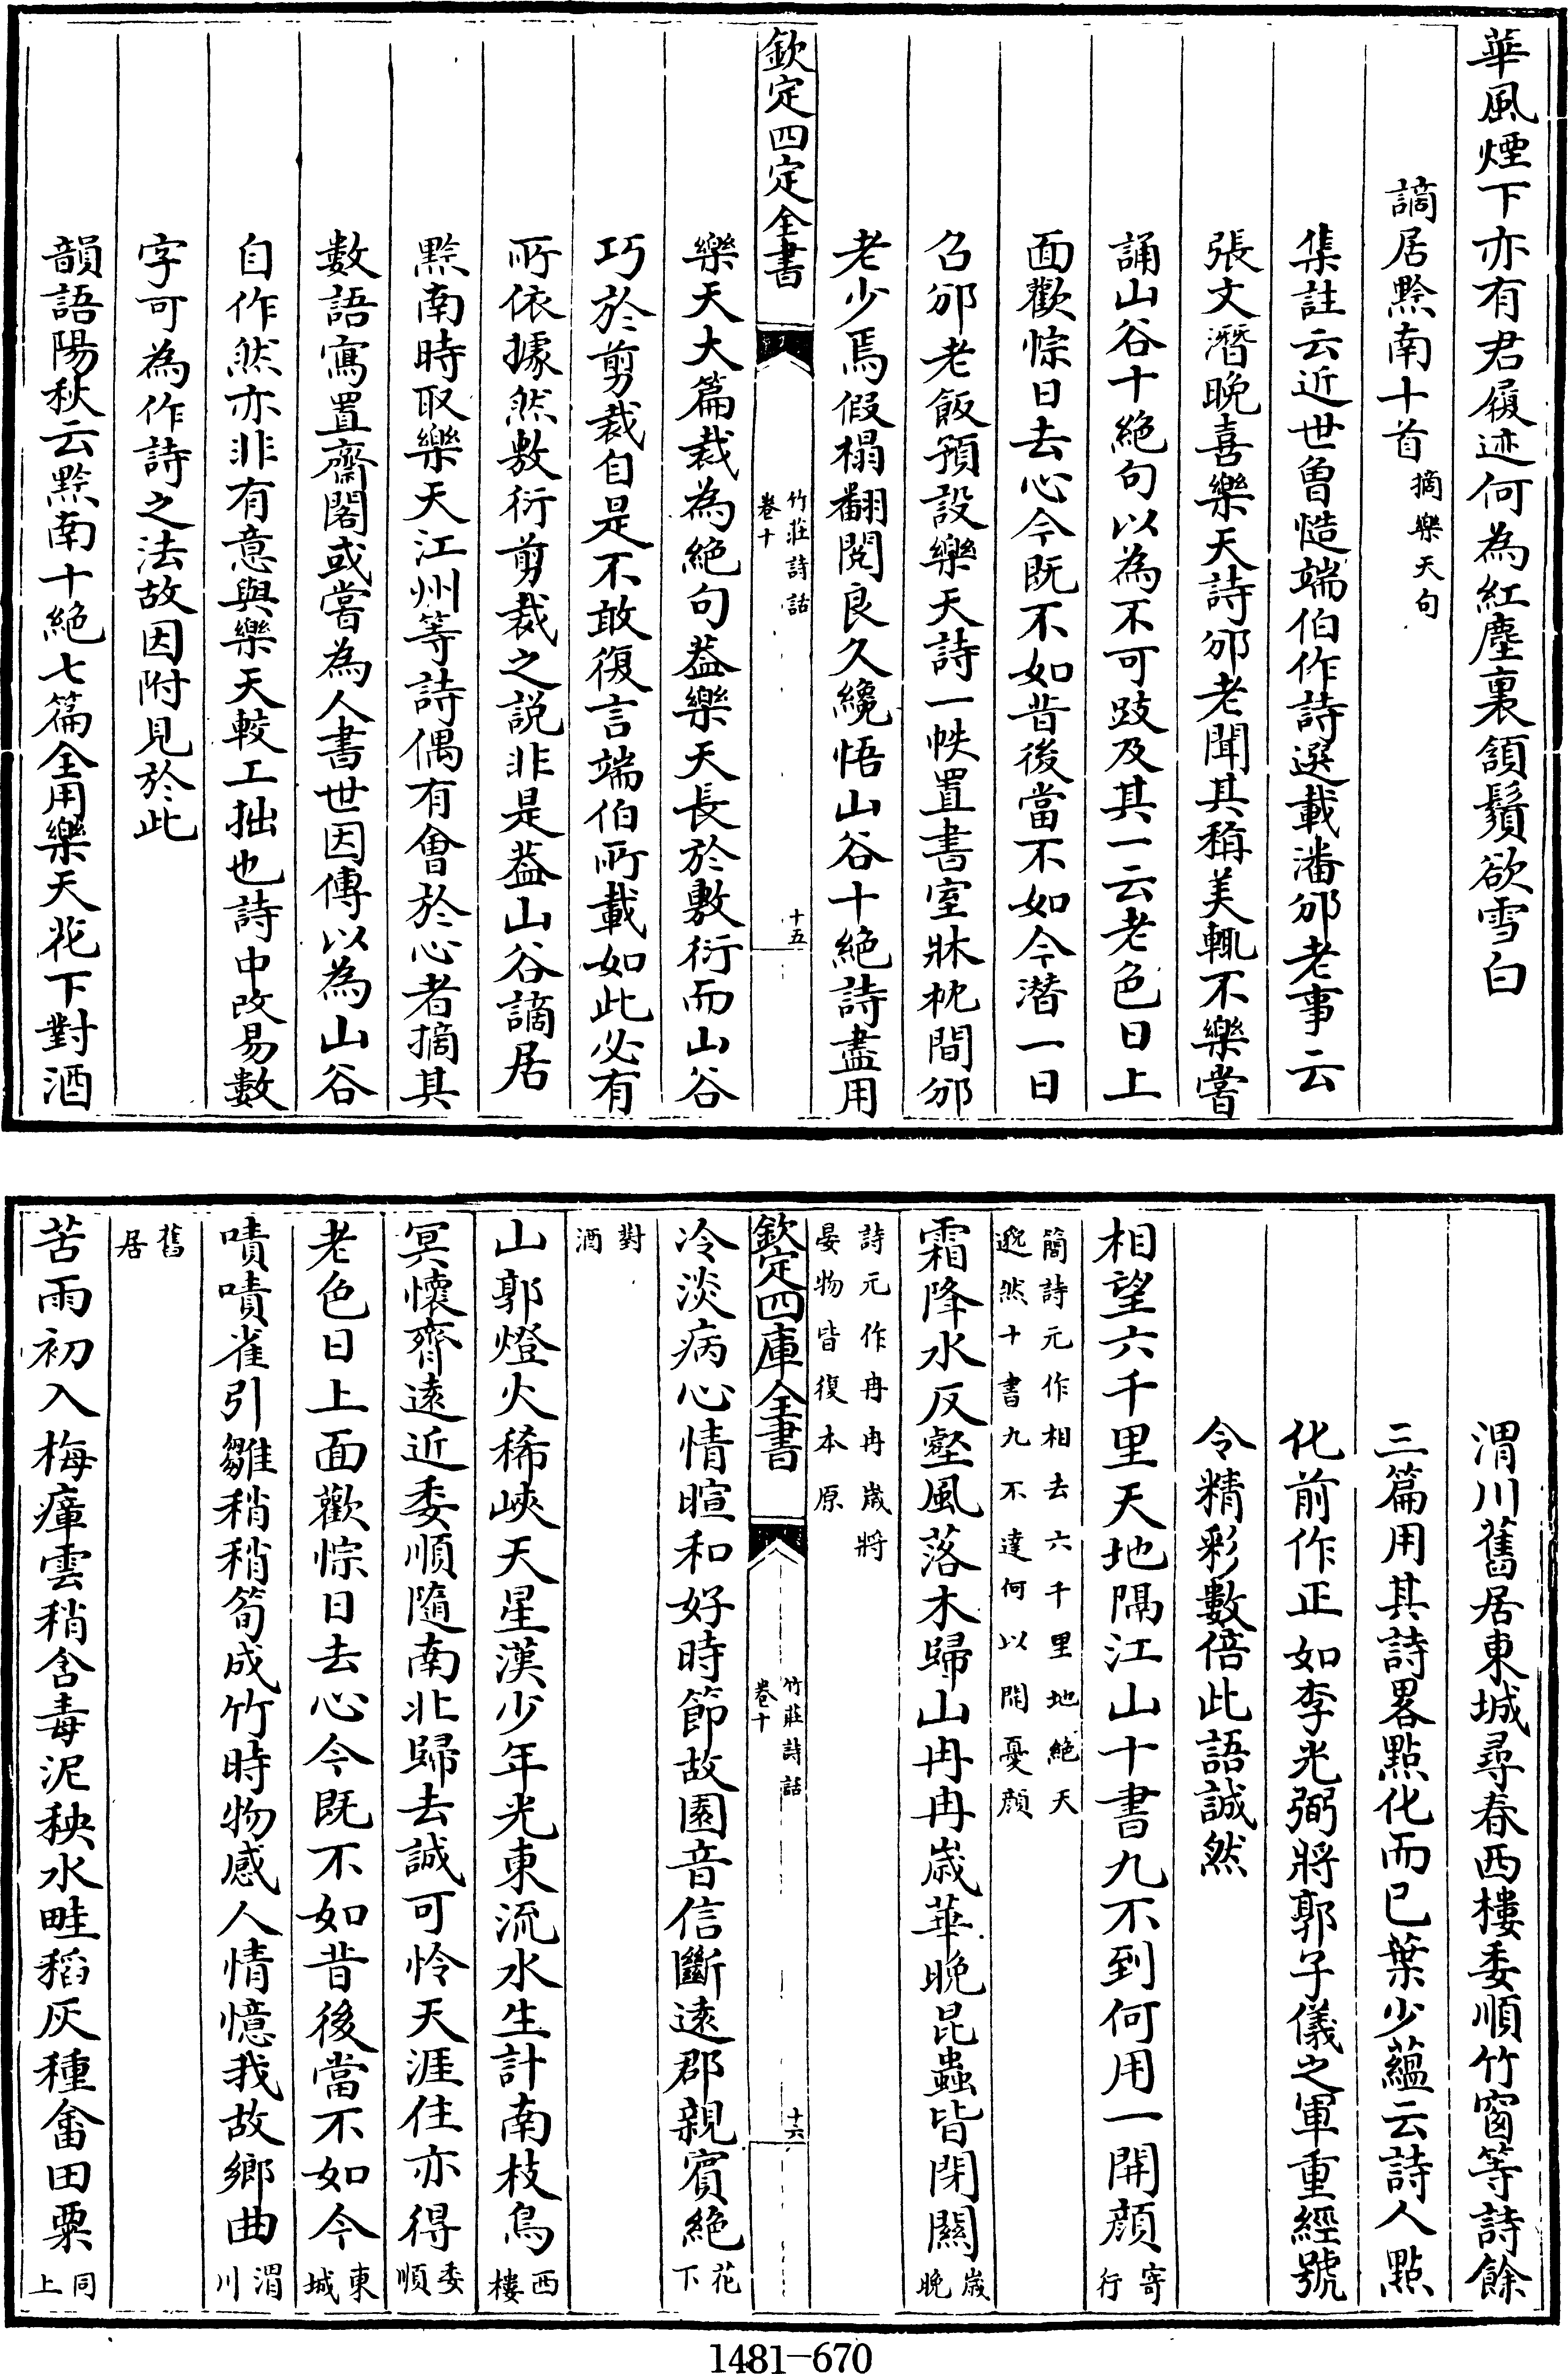 華風煙下亦有君履迹何為紅塵裏頷鬚欲雪白
謫居黔南十首摘樂天句
集註云近世曾慥端伯作詩選載潘邠老事云
張文潛晚喜樂天詩邠老聞其稱美輒不樂嘗
誦山谷十絶句以為不可跂及其一云老色日上
面歡悰日去心今既不如昔後當不如今潛一日
召邠老飯預設樂天詩一帙置書室牀枕間邠
老少焉假榻翻閱良久纔悟山谷十絶詩盡用
欽定四定全書
竹莊詩話
卷十
十五
樂天大篇裁為絶句葢樂天長於敷衍而山谷
巧於剪裁自是不敢復言端伯所載如此必有
所依據然敷衍剪裁之説非是葢山谷謫居
黔南時取樂天江州等詩偶有會於心者摘其
數語寫置齋閣或嘗為人書世因傳以為山谷
自作然亦非有意與樂天較工拙也詩中改易數
字可為作詩之法故因附見於此
韻語陽秋云黔南十絶七篇全用樂天花下對酒
渭川舊居東城尋春西樓委順竹窗等詩餘
三篇用其詩畧點化而已葉少蘊云詩人點
化前作正如李光弼將郭子儀之軍重經號
令精彩數倍此語誠然
相望六千里天地隔江山十書九不到何用一開顔寄行
簡詩元作相去六千里地絶天
邈然十書九不達何以開憂顔
霜降水反壑風落木歸山冉冉歲華晚昆蟲皆閉關歲晚
詩元作冉冉歲將
晏物皆復本原
欽定四庫全書
竹莊詩話
卷十
十六
冷淡病心情暄和好時節故園音信斷遠郡親賓絶花下
對
酒
山郭燈火稀峽天星漢少年光東流水生計南枝鳥西樓
冥懷齊遠近委順隨南北歸去誠可怜天涯住亦得委順
老色日上面歡悰日去心今既不如昔後當不如今東城
嘖嘖雀引雛稍稍筍成竹時物感人情憶我故鄉曲渭川
舊
居
苦雨初入梅瘴雲稍含毒泥秧水畦稻灰種畬田粟同上
1481-670